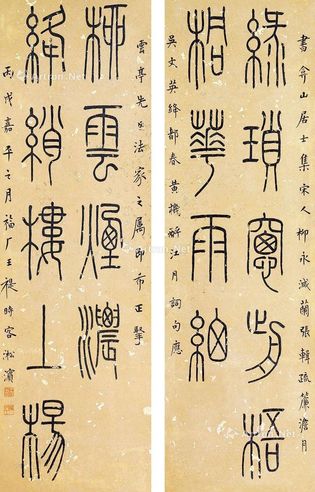 書弇山居士集宋人柳永減蘭張輯疏簾澹月
綠瑣窗前梧
桐華雨細
吳文英絳都春黃機酹江月詞句應
雲亭先生法家之屬即希正
桺雲煙濃
絳綃樓上楊
丙戌嘉平之月福厂王禔時客淞濱